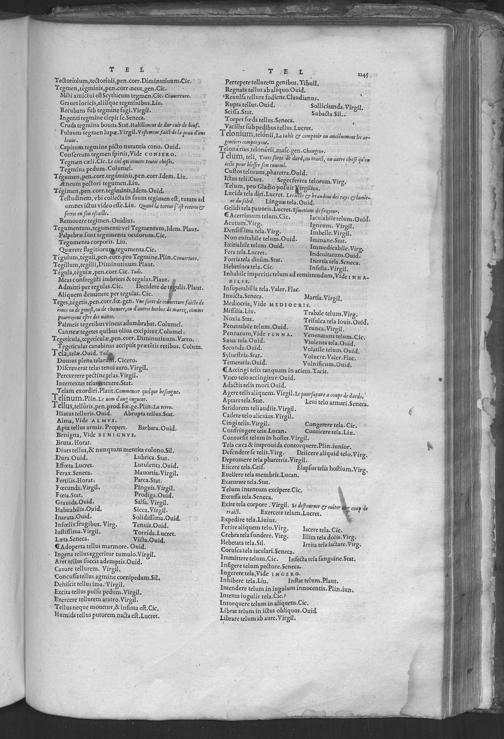 T E L
Tectoriolum, tectorioli, pen.corr. Diminutiuum. Cic.
Tegmen, tegminis, pen.corr. neut. gen. Cic.
Mihi amictui est Scythicum tegmen. Cic. Couuerture.
Graues loricis, aliisque tegminibus. Liu.
Recubans sub tegmine fagi. Virgil.
Ingenti tegmine clepit se. Seneca.
Fuluum tegmen lupa. Virgil.
loup.
Capitum tegmina picto
Conferram tegmen spinis, Vide CONSERO.
Tegmen cæli. Cic.
Tegmina pedum. Columel.
Tegumen, pen.corr. teguminis, pen.corr. Idem. Liu.
Æneum pectori tegumen. Liu.
Tegimen, pen.corr. tegiminis, Idem. Ouid.
Testudinem, vbi collecta in suum tegimen est, tutam ad
omnes ictus video esse. Liu.
Remouere tegimen. Ouidius.
Tegumentum, tegumenti: vel Tegumentum, Idem. Plaut.
Palpebræ sunt tegumenta oculorum. Cic.
Tegumenta corporis. Liu.
Quærere flagitiorum tegumenta. Cic.
Tegulum, teguli, pen.corr. pro Tegmine. Plin. Couuerture.
Tegillum, tegilli, Diminutiuum. Plaut.
Tegula, tegulæ, pen.corr. Cic. Tuile.
Meas confregisti imbrices & tegulas. Plaut.
Admitti per tegulas. Cic. Decidere de tegulis. Plaut.
Aliquem demittere per tegulas. Cic.
Teges, tegetis, pen.corr. fœ. gen.
Palmeis tegetibus vineas adumbrabat. Columel.
Canneæ tegetes quibus olim excipitur. Columel.
Tegeticula, tegeticulæ, pen.corr. Diminutiuum. Varro.
Tegeticulas canabinas accipiis præteriis retibus. Colum.
Tela, telæ. Ouid. Toile.
Domus plena telarum. Cicero.
Discurreret telas tenui auro. Virgil.
Percurrere pectine telas. Virgil.
Intertextas telas nectere. Stat.
Telam exordiri. Plaut. Commencer quelque besongne.
Telinum. Plin. Le nom d'vng vnguent.
Tellus, telluris, pen.prod. fœ.ge. Plin. La terre.
Hilaris telluris. Ouid. Abrupta tellus. Stat.
Alma, Vide ALMVS.
Apta tellus armis. Propert. Barbara. Ouid.
Benigna, Vide BENIGNVS.
Bruta. Horat.
Diues tellus, & nunquam mentita colono. Sil.
Dura. Ouid. Lubrica. Stat.
Effœta. Lucret. Lutulenta. Ouid.
Ferax. Seneca. Mauortia. Virgil.
Fertilis. Horat. Parca. Stat.
Fœcunda. Virgil. Pinguis. Virgil.
Fœta. Stat. Prodiga. Ouid.
Grauida. Ouid. Salsa. Virgil.
Habitabilis. Ouid. Sicca. Virgil.
Inarata. Ouid. Solidissima. Ouid.
Infœlix frugibus. Virg. Tenuis. Ouid.
Iustissima. Virgil. Torrida. Lucret.
Læta. Seneca. Vasta. Ouid.
¶ Adoperta tellus marmore. Ouid.
Ingens tellus aggeritur tumulo. Virgil.
Aret tellus succis ademptis. Ouid.
Cauare tellurem. Virgil.
Concussa tellus agmine cornipedum. Sil.
Dehiscit tellus imo. Virgil.
Excita tellus pulsu pedum. Virgil.
Exercere tellurem aratro. Virgil.
Tellus neque monetur, & infima est. Cic.
Humida tellus putorem nacta est. Lucret.
T E L
1245
Perrepere tellurem genibus. Tibull.
Regnata tellus ab aliquo. Ouid.
Reuulsa tellure fodiens. Claudianus.
Rupta tellus. Ouid. Solliciunda. Virgil.
Scissa. Stat. Subacta. Sil.
Torpet fœda tellus. Seneca.
Vacillat sub pedibus tellus. Lucret.
Telonium, telonii,
Telonarius, telonarii, masc. gen. Changeur.
Telum, teli,
Custos telorum, pharetra. Ouid.
Ictus teli. Curt. Seges ferrea telorum. Virg.
Telum, pro Gladio posuit Virgilius.
Lucida tela diei. Lucret.
Linguæ tela. Ouid.
Gelidi tela pauoris. Lucret.
¶ Acerrimum telum. Cic. Iaculabile telum. Ouid.
Acutum. Virg. Igneum. Virgil.
Densissima tela. Virg. Imbelle. Virgil.
Non euitabile telum. Ouid. Immane. Stat.
Exitiabile telum. Ouid. Immedicabile. Virg.
Fera tela. Lucret. Indeuitatum. Ouid.
Fortia tela diuûm. Stat. Inertia tela. Seneca.
Hebetiora tela. Cic. Infesta. Virgil.
Inhabile imperitis telum ad remittendum, Vide INHA-
BILIS.
Insuperabilis tela. Valer. Flac.
Inuicta. Seneca. Martia. Virgil.
Mediocria, Vide MEDIOCRIS.
Missilia. Liu. Trabale telum. Virg.
Noxia. Stat. Trisulca tela Iouis. Ouid.
Penetrabile telum. Ouid. Trunca. Virgil.
Pennatum, Vide PENNA. Venenatum telum. Cic.
Sæua tela. Ouid. Violenta tela. Ouid.
Secunda. Ouid. Volatile telum. Ouid.
Syluestria. Stat. Volucre. Valer. Flac.
Temeraria. Ouid. Vulnificum. Ouid.
¶ Accingi telis tanquam in aciem. Tacit.
Vnco telo accingitur. Ouid.
Adactis telis mori. Ouid.
Agere telis aliquem. Virgil.
Aptare tela. Stat. Leui telo armari. Seneca.
Stridorem teli audire. Virgil.
Cadere telo alicuius. Virgil.
Cingi telis. Virgil. Congerere tela. Cic.
Confringere tela. Lucan. Coniicere tela. Liu.
Contorsit telum in hostes. Virgil.
Tela cæca & improuida contorquere. Plin. iunior.
Defendere se telis. Virg. Deiicere aliquid telo. Virg.
Depromere tela pharetris. Virgil.
Eiicere tela. Celf. Elapsus telis hostium. Virg.
Euellere tela membris. Lucan.
Exarmare tela. Stat.
Telum intentum excipere. Cic.
Excussa tela. Seneca.
Exire tela corpore. Virgil. Se destourner & euiter vne coup de
traict. Exercere telum. Lucret.
Expedire tela. Liuius.
Ferire aliquem telo. Virg. Iacere tela. Cic.
Crebra tela fundere. Virg. Illita tela dolis. Virg.
Hebetata tela. Sil. Irrita tela iactare. Virg.
Corusca tela iaculari. Seneca.
Immittere telum. Cic. Infecta tela sanguine. Stat.
Infigere telum pectore. Seneca.
Ingerere tela, Vide INGERO.
Inhibere tela. Liu. Instat telum. Plaut.
Intendere telum in iugulum innocentis. Plin. iun.
Intenta iugulis tela. Cic.
Intorquere telum in aliquem. Cic.
Librat telum in ictus obliquos. Ouid.
Librare telum ab aure. Virgil.